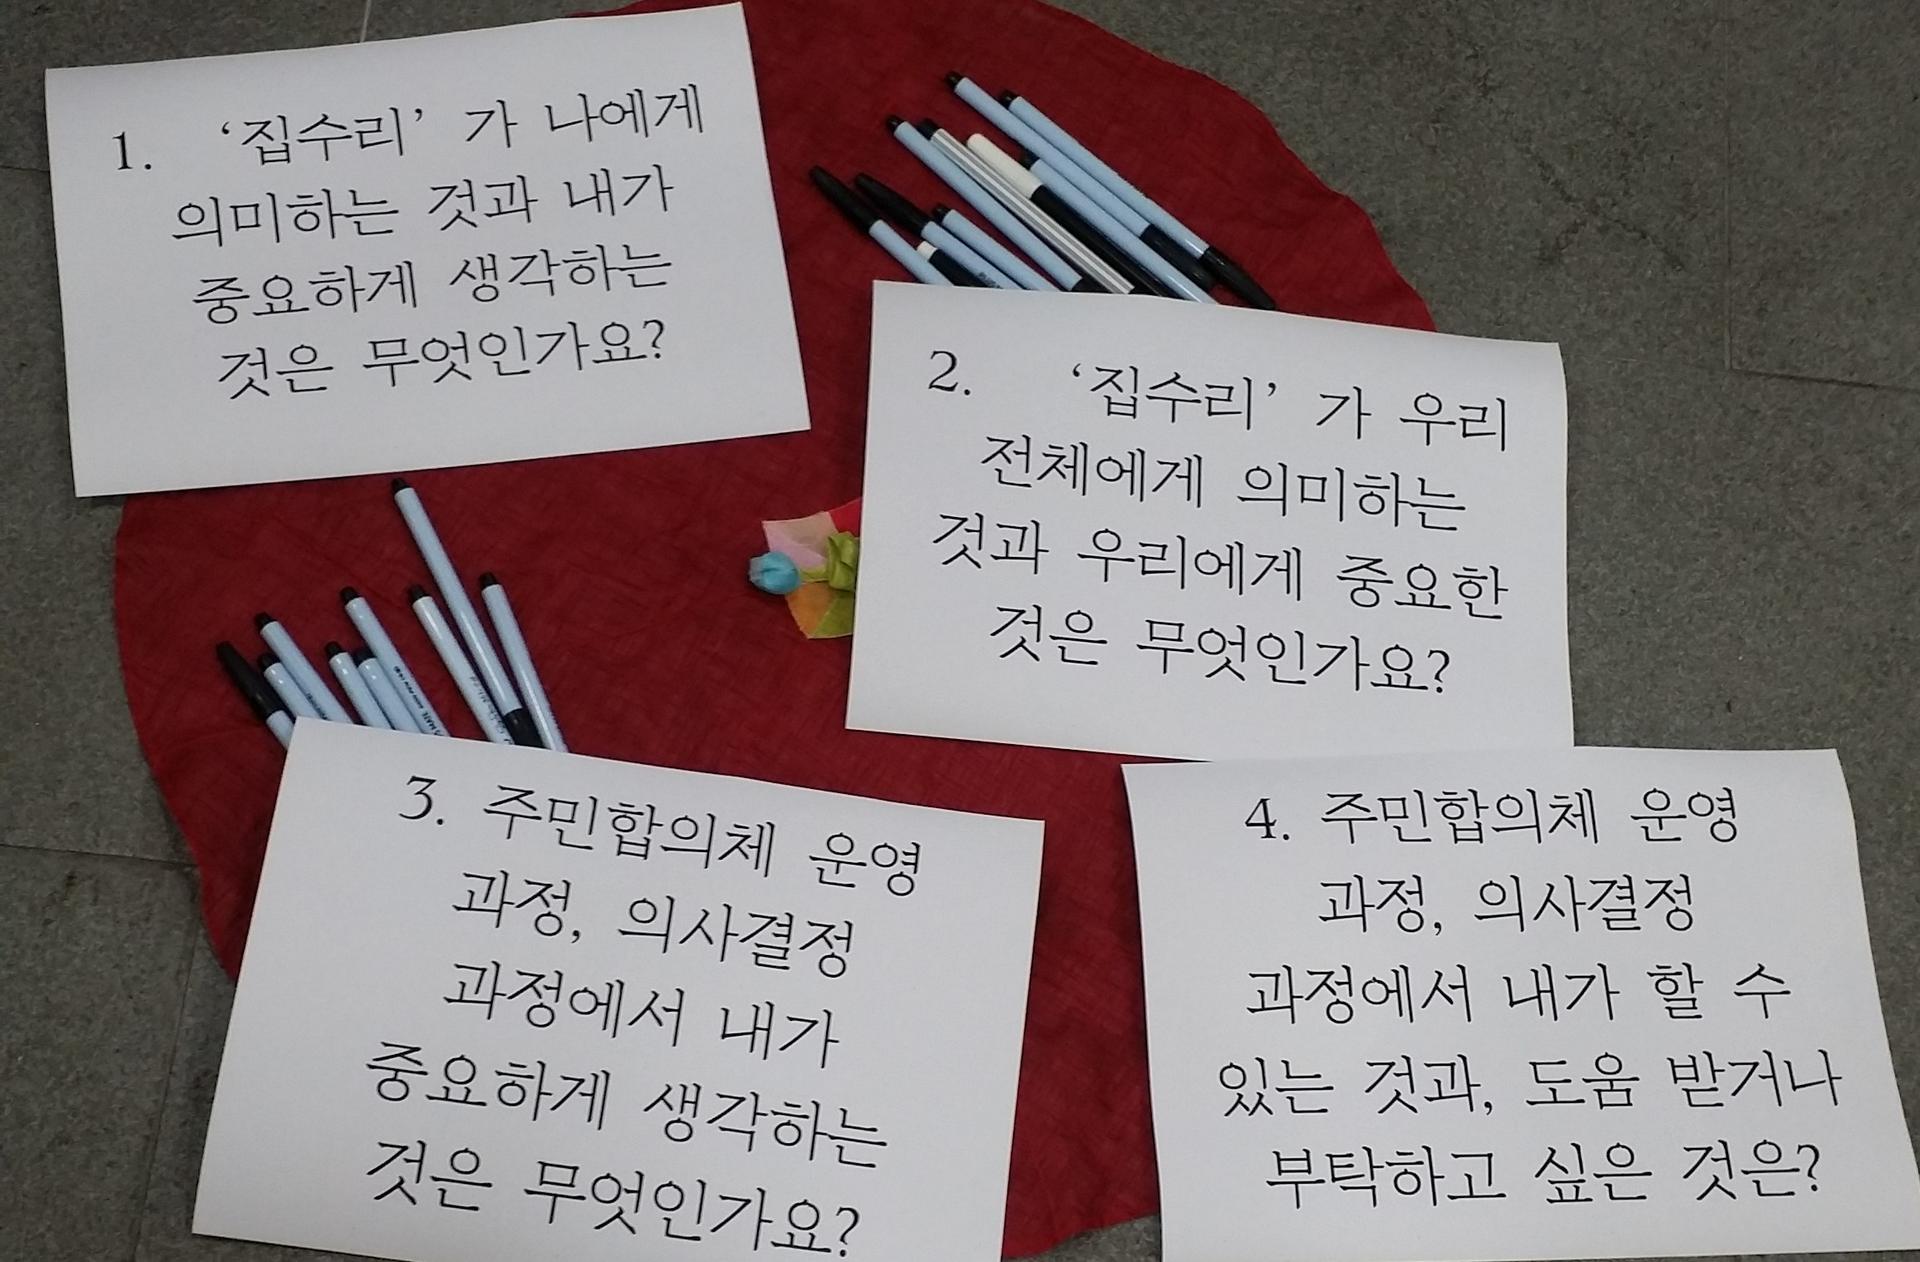 1. ‘집수리’ 가 나에게
의미하는 것과 내가
중요하게 생각하는
것은 무엇인가요?
2. ‘집수리’ 가 우리
전체에게 의미하는
것과 우리에게 중요한
것은 무엇인가요?
3. 주민합의체 운영
과정, 의사결정
과정에서 내가
중요하게 생각하는
것은 무엇인가요?
4. 주민합의체 운영
과정, 의사결정
과정에서 내가 할 수
있는 것과, 도움 받거나
부탁하고 싶은 것은?